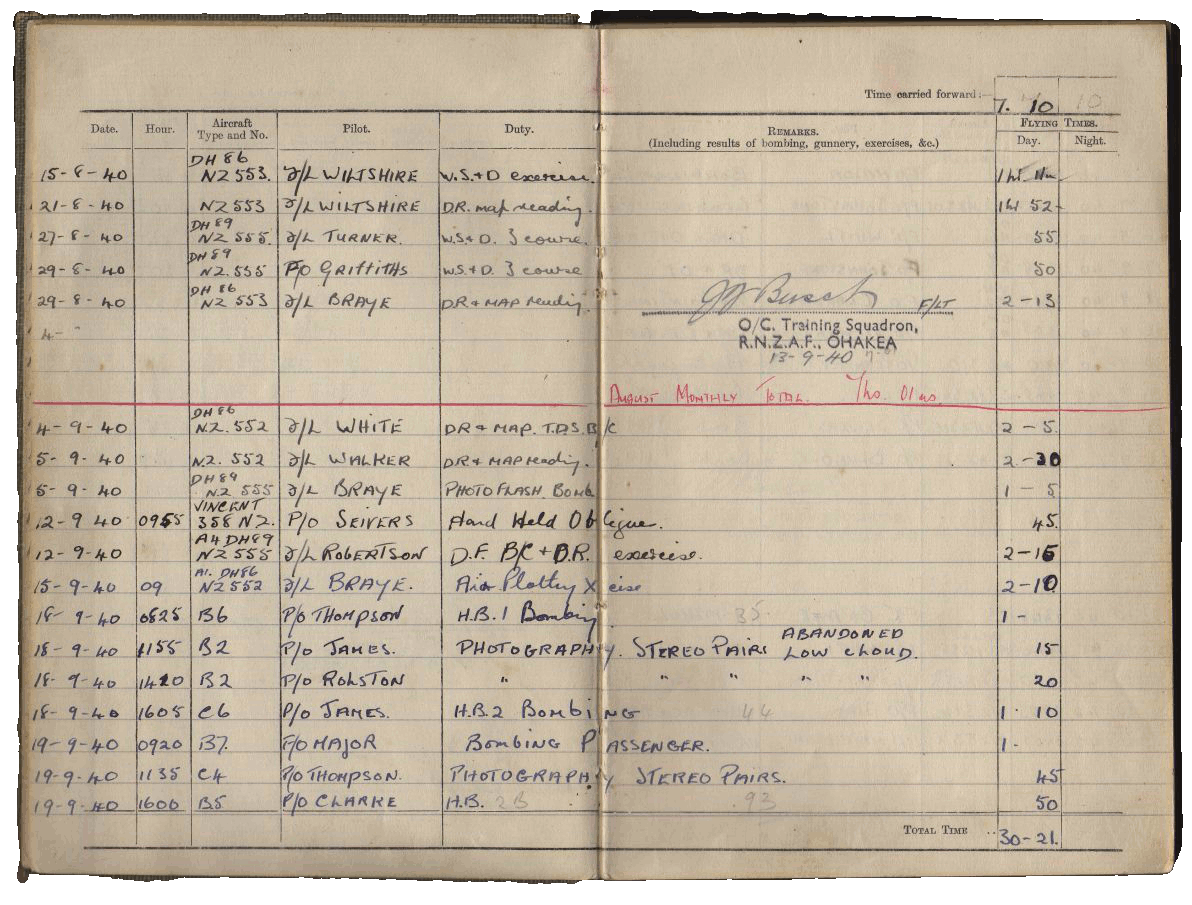 Time carried forward:— 7. 10 10
Date. Hour. Aircraft Type and No. Pilot. Duty. REMARKS. (Including results of bombing, gunnery, exercises, &c.) FLYING TIMES. Day. Night.
15-8-40 DH 86 NZ 553. F/L WILTSHIRE W.S.+D exercise. 1 hr.
21-8-40 NZ 553 F/L WILTSHIRE D.R. map reading. 1 hr 52
27-8-40 DH 89 NZ 555. F/L TURNER. W.S+D. 3 course. 55
29-8-40 DH 89 NZ.555 F/O GRIFFITHS W.S+D. 3 course 50
29-8-40 DH 86 NZ 553 F/L BRAYE DR + MAP reading. 2-13
J J Busch F/LT
4-
O/C. Training Squadron,
R.N.Z.A.F., OHAKEA
13-9-40
AUGUST MONTHLY TOTAL. 7 hrs. 01 ms.
4-9-40 DH 86 NZ. 552 F/L WHITE DR + MAP. T.D.S. B/C 2-5.
5-9-40 NZ. 552 F/L WALKER DR + MAP reading. 2-30
5-9-40 DH 89 NZ 555 F/L BRAYE PHOTO FLASH BOMB 1-5
12-9 40 0955 VINCENT 358 NZ. P/O SEIVERS Hand Held Oblique. 45.
12-9-40 A4 DH89 NZ 555 F/L ROBERTSON D.F. B/C + D.R. exercise. 2-15
15-9-40 09 A1. DH86 NZ552 F/L BRAYE. Air Plotting Xcise 2-10
18-9-40 0825 B6 P/O THOMPSON H.B.1 Bombing. 35. 1-
18-9-40 1155 B2 P/O JAMES. PHOTOGRAPHY. STEREO PAIRS ABANDONED LOW CLOUD. 15
18-9-40 1420 B2 P/O ROLSTON " " " " " 20
18-9-40 1605 C6 P/O JAMES. H.B.2 BOMBING 44 1. 10
19-9-40 0920 B7. F/O MAJOR BOMBING PASSENGER. 1-
19-9-40 1135 C4 P/O THOMPSON. PHOTOGRAPHY STEREO PAIRS. 45
19-9-40 1600 B5 P/O CLARKE H.B. 2B 93 50
TOTAL TIME 30-21.